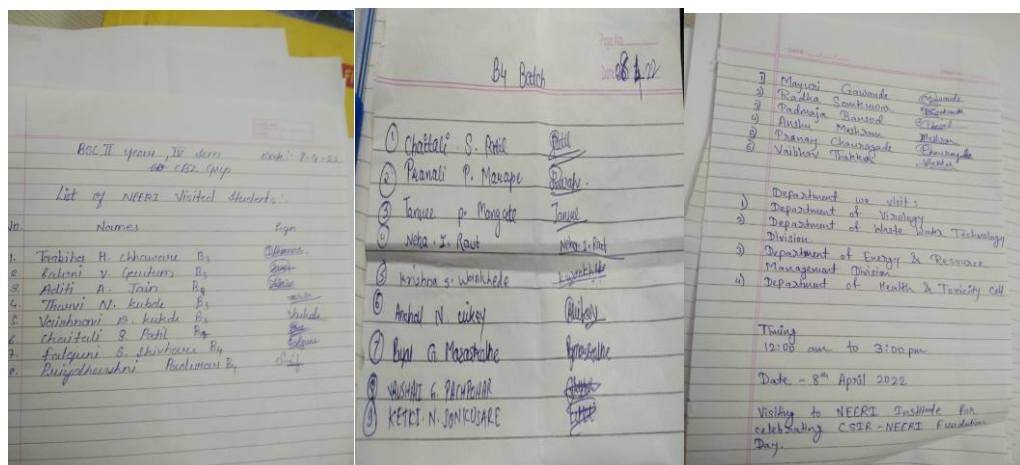 BSC II year, IV sem Date: 8-4-22
CBZ Grup
List of NEERI Visited Students:-
No. Names Sign
1. H. Chhaware B3
2. V. Gautam B3
3. Aditi A. Jain
4. Thanvi N. Kukde B3
5. Vaishnavi Kukde B3 VKukde
6. Chaitali S. Patil B4
7. Falguni S. B4
8. B4
Page No.
Date 22
B4 Batch
1 Chaitali S. Patil Patil
2 Pranali P. Marape
3 Tanvee P. Mangate Tanvee
4 Neha. I. Raut Neha. I. Raut
5 Krishna S. Wankhede Kwankhede
6 Anchal N.
7 G.
8 VAISHNAVI G. PACHPOHAR
9 KETKI. N. SONKUSARE
DATE
1) Mayuri Gawande
2) Radha Somkuwar
3) Padmaja Bansod
4) Anshu Meshram Meshram
5) Pranay Chauragade Chauragade
6) Vaibhav Thakkar
Department we visit:
1) Department of Virology
2) Department of Waste Water Technology
Division
3) Department of Energy & Resource
Management Division
4) Department of Health & Toxicity Cell
Timing
12:00 am to 3:00 pm
Date - 8th April 2022
Visiting to NEERI Institute for
celebrating CSIR-NEERI Foundation
Day.